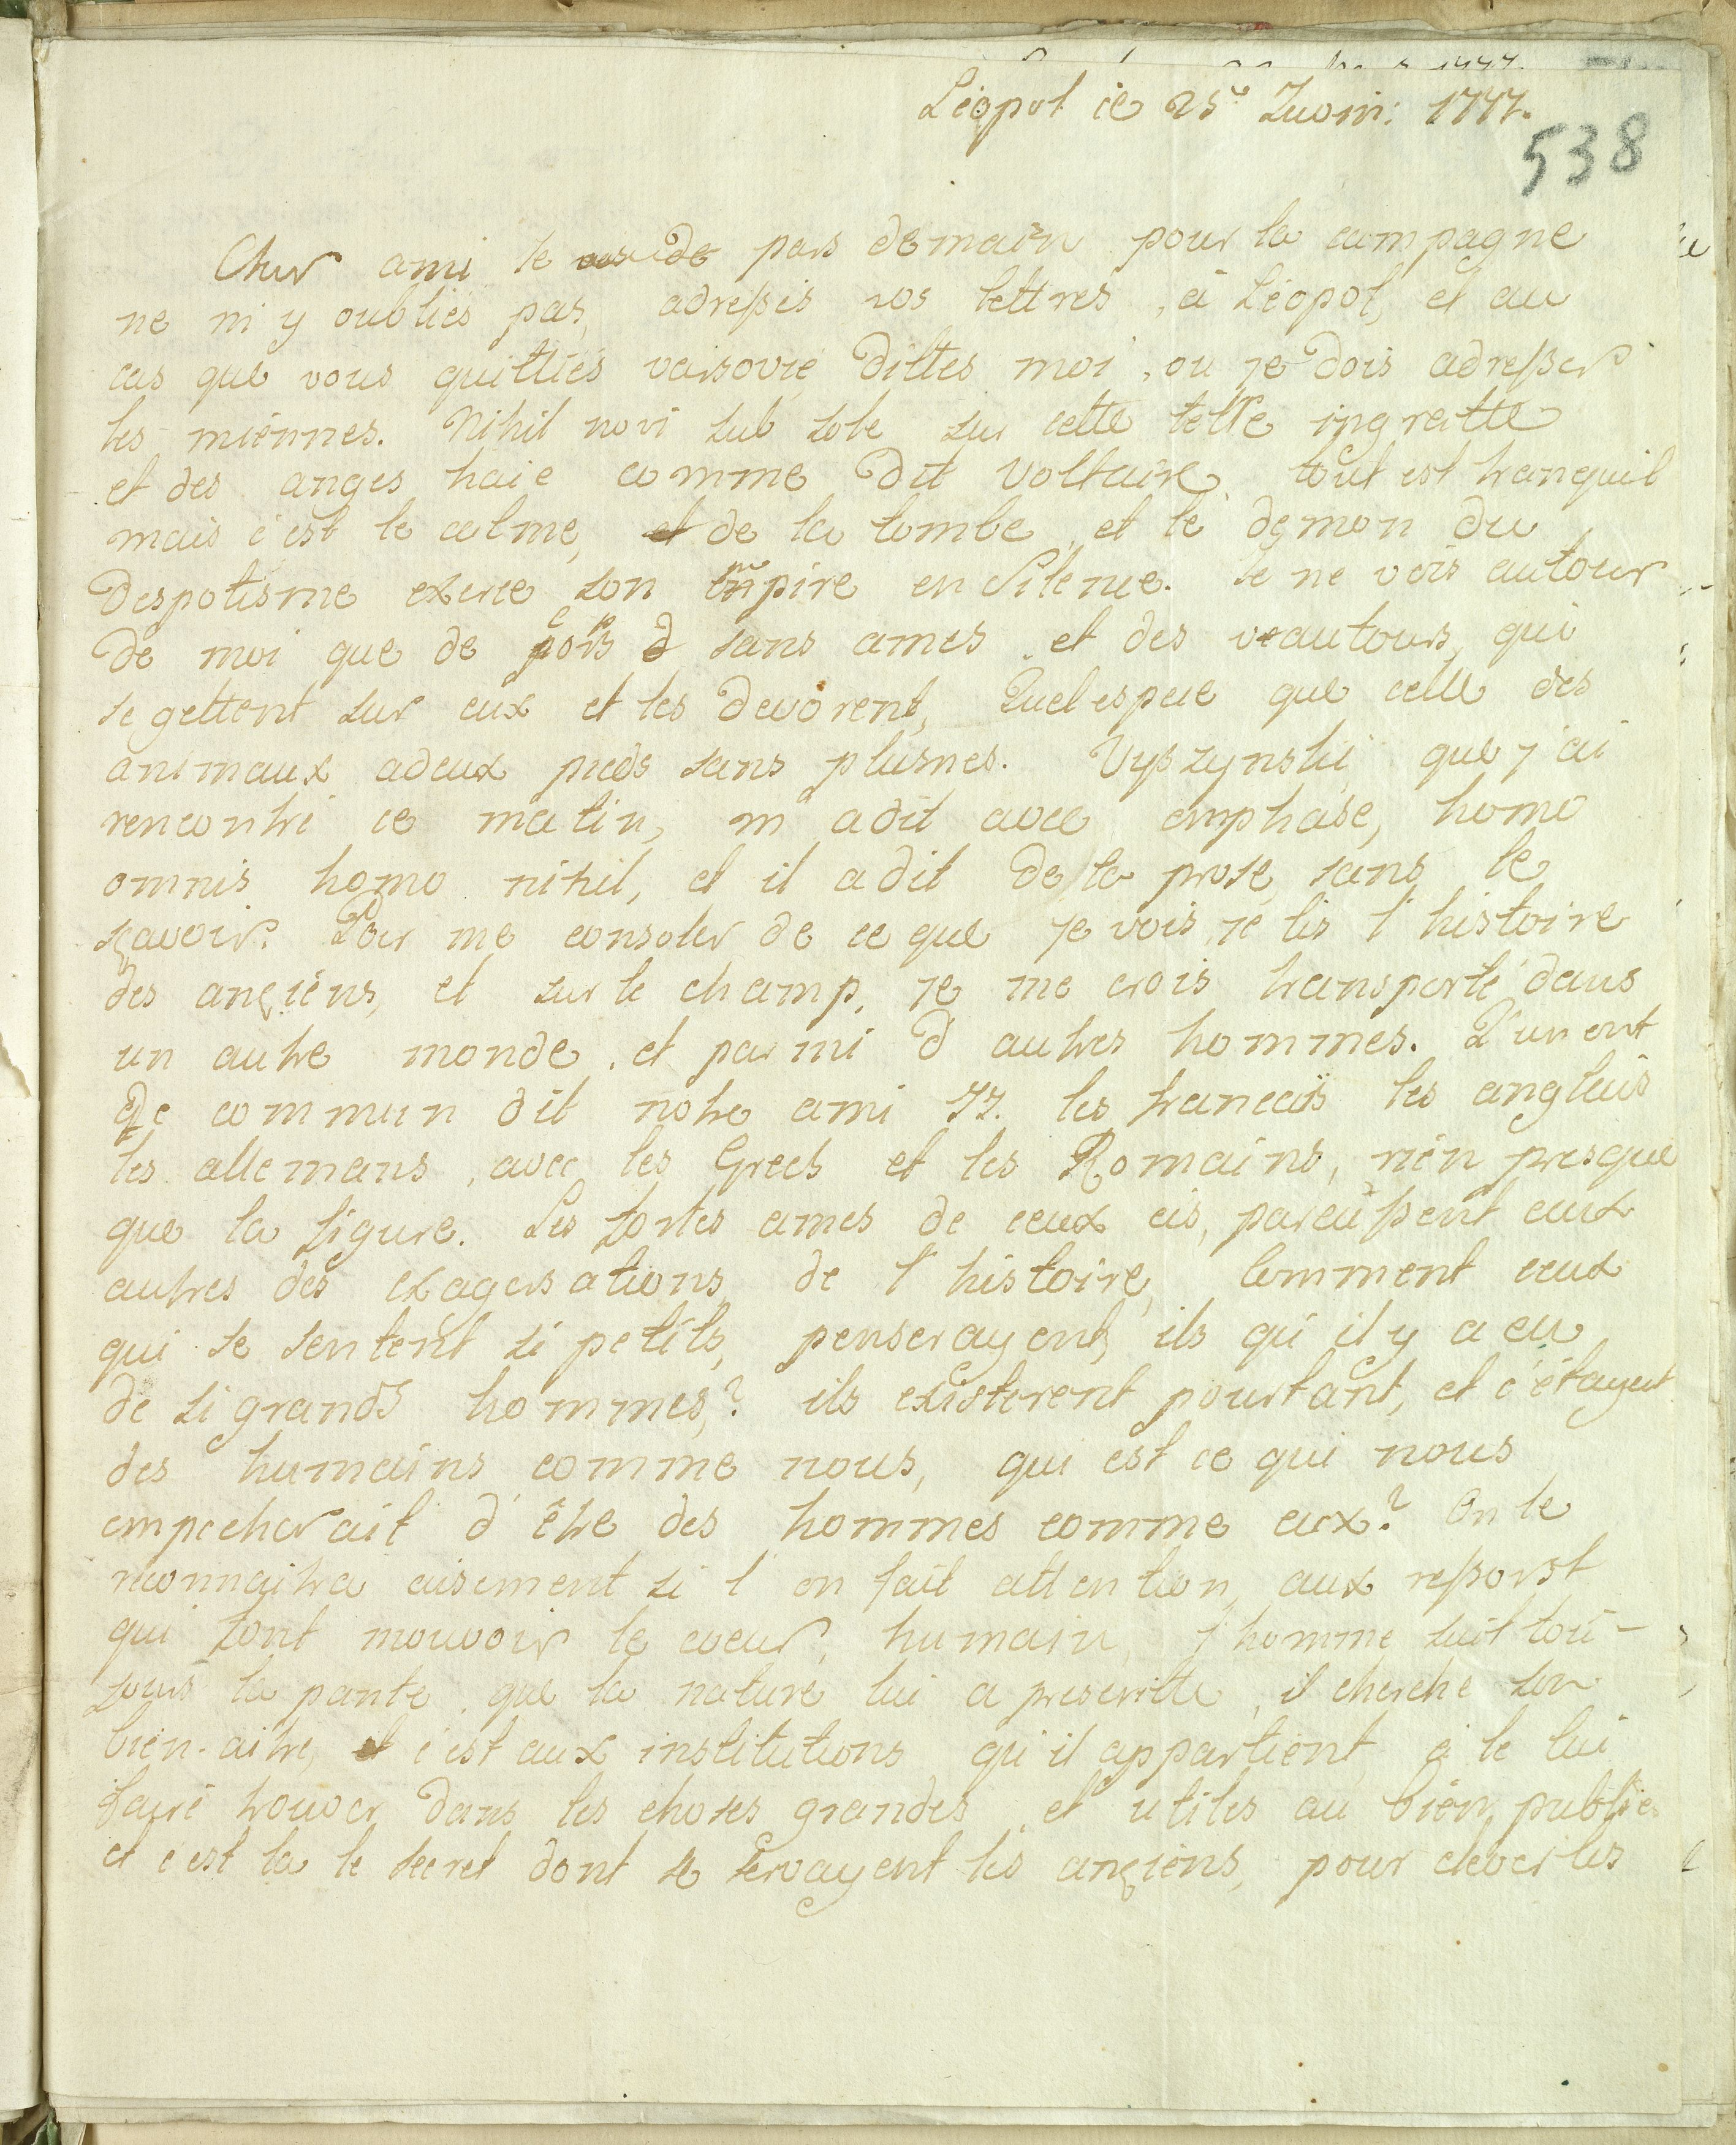 Léopol ce 25e Juoin: 1777.
538
Cher ami Je pars demain pour la campagne
ne m'y oubliés pas, adreßés vos lettres, à Léopol, et au
cas que vous quittiés varsovie, dittes moi, ou je dois adreßer
les miénnes. Nihil novi sub sole sur cette terre ingratte
et des anges haie comme dit Voltaire, tout est tranquil
mais c'est le calme, de la tombe, et le démon du
despotisme exerce son empire en Silence. Je ne vois autour
de moi que de corps sans ames, et des vautours, qui
se gettent sur eux et les devorent, Quel espece que celle des
animaux adeux pieds sans plusmes. Vyßzynski que j'ai
rencontré ce matin, m'a dit avec emphase, homo
omnis homo nihil, et il a dit de la prose, sans le
sçavoir. Pour me consoler de ce que je vois, je lis l'histoire
des ançiéns, et sur le champ, je me crois transporté dans
un autre monde, et parmi d'autres hommes. Qu'un ont
de commun dit notre ami JJ. les francais les anglais
les allemans, avec les Grecs et les Romains, rién presque
que la figure. Les fortes ames de ceux cis, paraißent aux
autres des exagerations de l'histoire, Comment ceux
qui se sentent si petits, penserayent, ils qu'il y a eu
de si grands hommes,? ils existerent pourtant, et c'étayent
des humains comme nous, qui est ce qui nous
empecherait d'être des hommes comme eux? On le
reconnaitra aisement si l'on fait attention, aux reßorst
qui font mouvoir le coeur, humain, l'homme suit tou-
jours la pante, que la nature lui a prescritte, il cherche son
bién-aitre, c'est aux institutions qu'il appartient, à le lui
faire trouver dans les choses grandes, et utiles au bién, public
et c'est la le secret dont se servayent les ançiéns, pour elever les